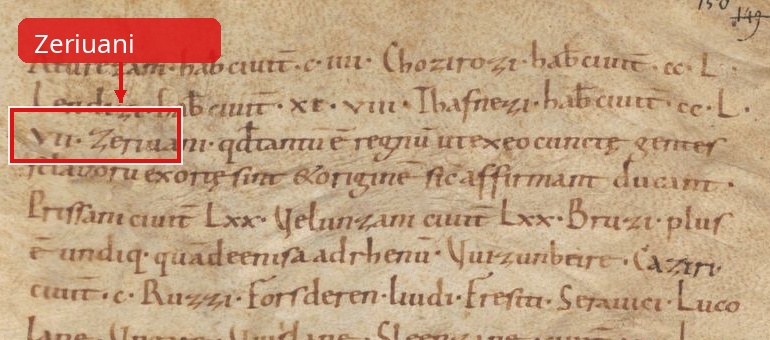 150
149
Zeriuani
Aturezani · hab̄ ciuit̄ · c · iiii · Chozirozi · hab̄ ciuit̄ · cc · L ·
Lendizi · hab̄ ciuit̄ · xc · viii · Thafnezi · hab̄ ciuit̄ · cc · L ·
vii · Zeriuani · qd̄ tantū ē regnū ut ex eo cunctę gentes
sclauorū exortę sint & originē sic affirmant ducant ·
Prissani ciuit̄ Lxx · Uelunzani ciuit̄ Lxx · Bruzi · plus
ē undiq · quā de enisa ad rhenū · Uuizunbeire · Caziri ·
ciuit̄ · c · Ruzzi · Forsderen · liudi · Fresiti · Serauici · Luco
lane · Ungare · Uuislane · Sleenzane · ciuit̄